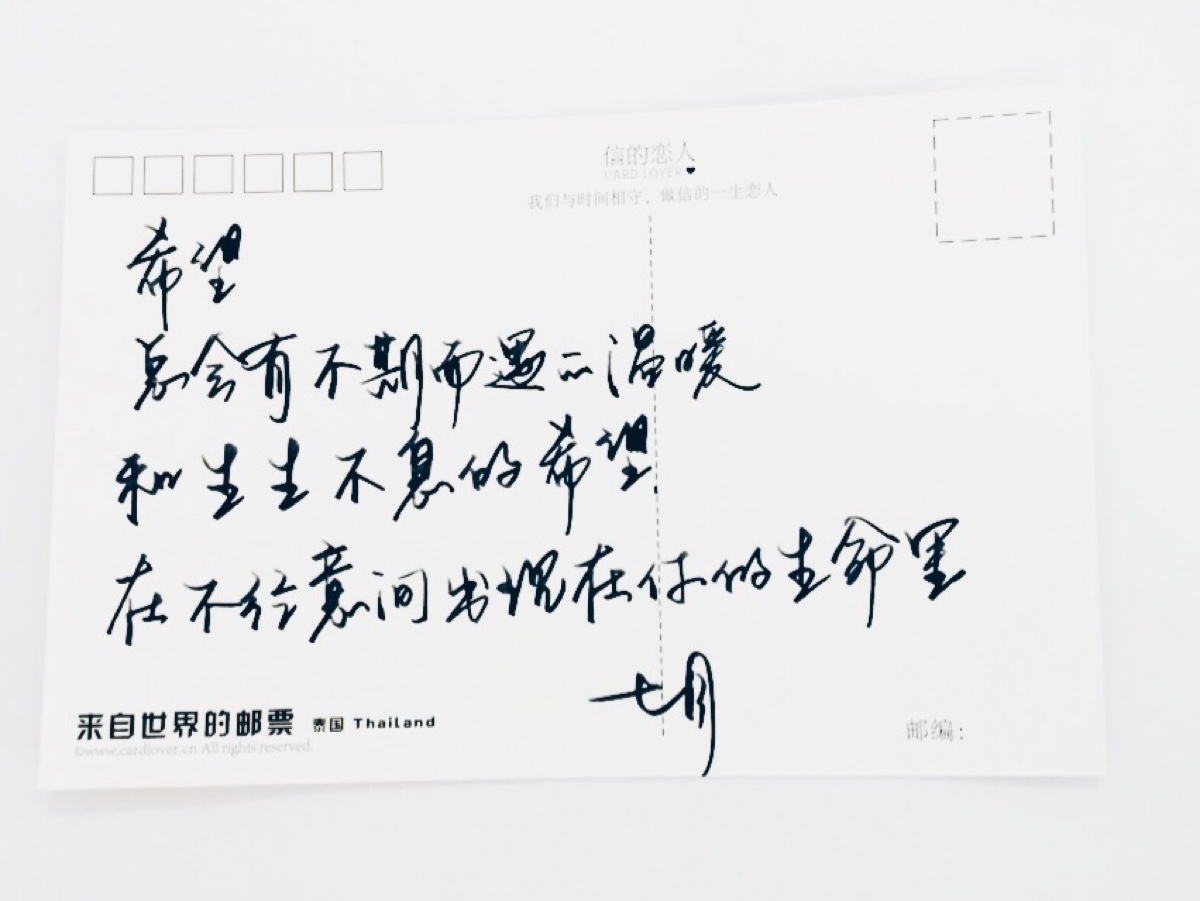 信的恋人
CARD LOVER
我们与时间相守，做信的一生恋人
希望
总会有不期而遇的温暖
和生生不息的希望
在不经意间出现在你的生命里
七月
来自世界的邮票 泰国 Thailand
©www.cardlover.cn All rights reserved.
邮编：